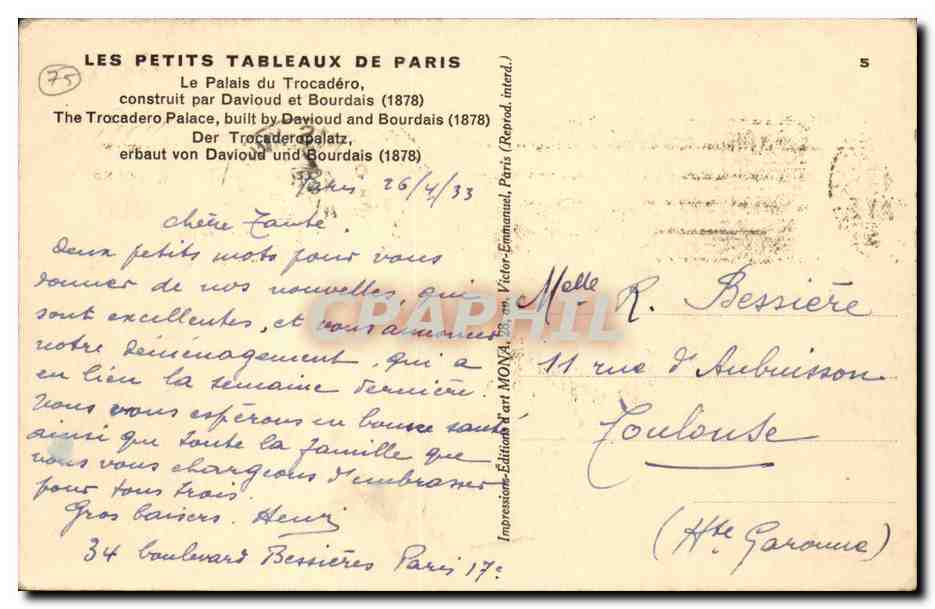 75
LES PETITS TABLEAUX DE PARIS
Le Palais du Trocadéro,
construit par Davioud et Bourdais (1878)
The Trocadero Palace, built by Davioud and Bourdais (1878)
Der Trocaderopalatz,
erbaut von Davioud und Bourdais (1878)
5
Paris 26/4/33
Chère Tante.
Deux petits mots pour vous
donner de nos nouvelles, qui
sont excellentes, et vous annoncer
notre déménagement, qui a
eu lieu la semaine dernière.
Nous vous espérons en bonne santé
ainsi que toute la famille que
nous vous chargeons d'embrasser
pour tous trois.
Gros baisers. Henri
34 boulevard Bessières Paris 17e
Impressions-Editions d'art MONA, 28, av. Victor-Emmanuel, Paris (Reprod. interd.)
Melle R. Bessière
11 rue d'Aubuisson
Toulouse
(Hte Garonne)
CPAPHIL